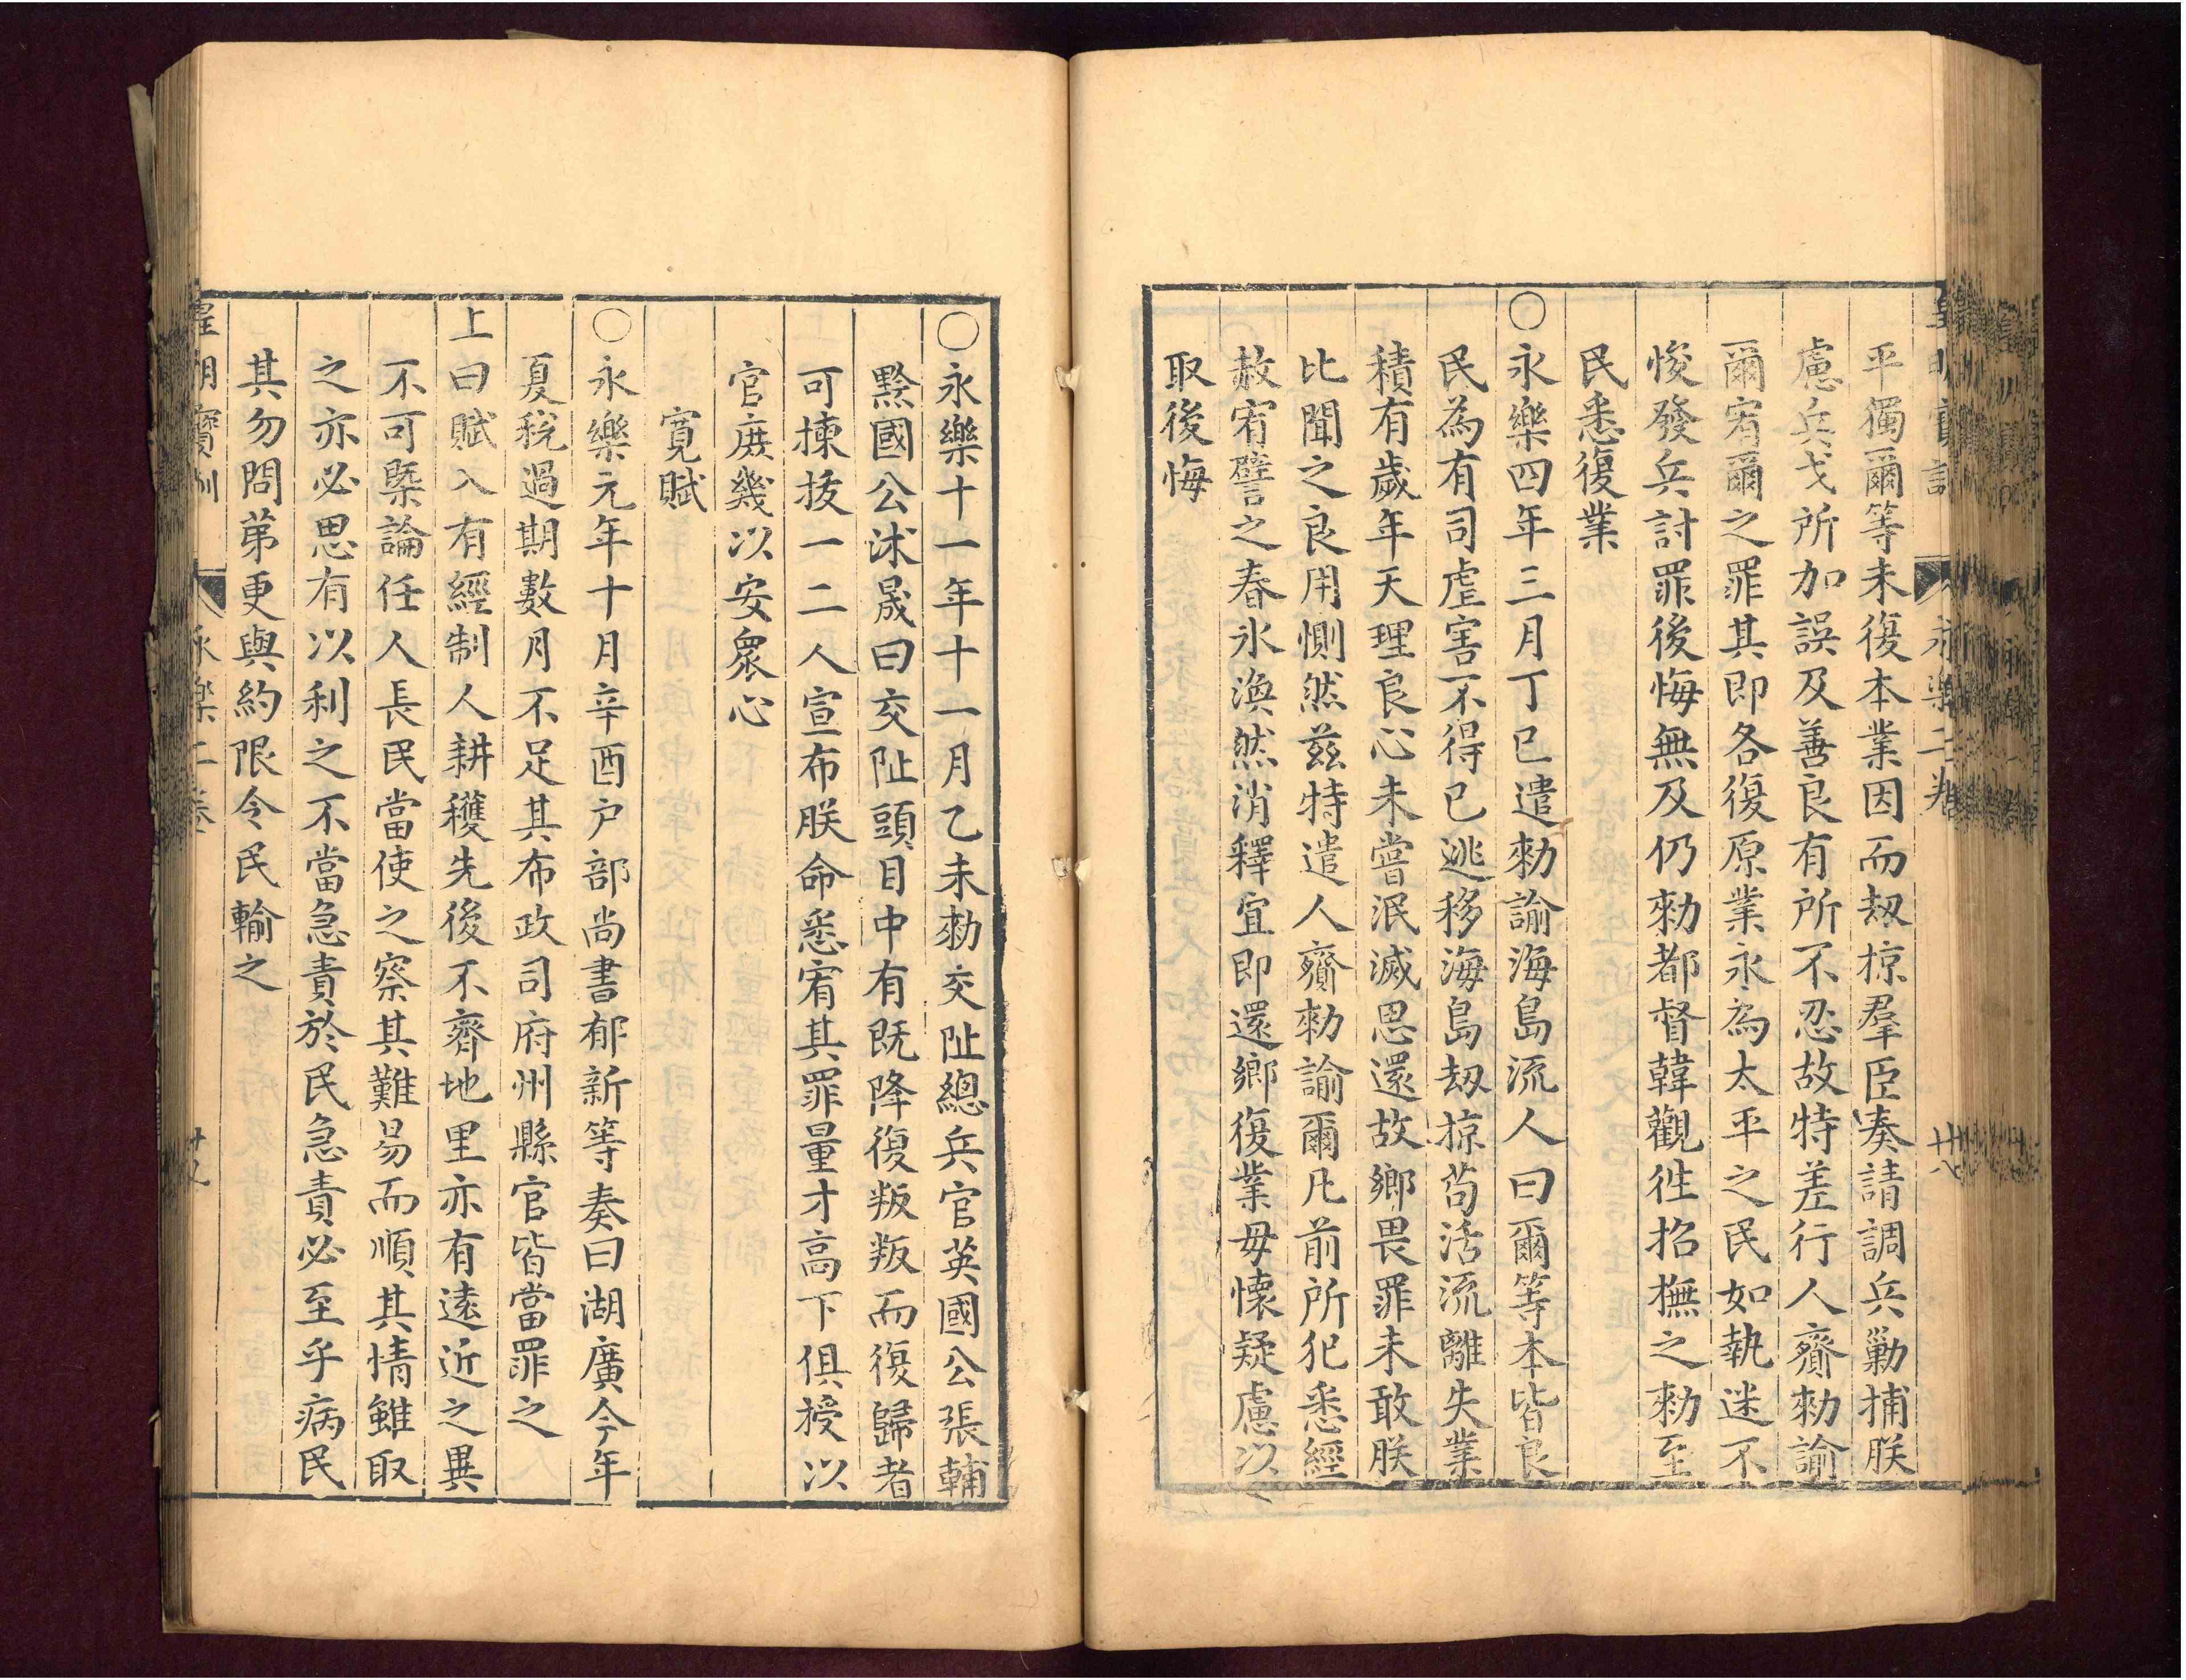 平獨爾等未復本業因而刼掠羣臣凑請調兵勦捕朕
慮兵戈所加誤及善良有所不忍故特差行人齎勑諭
爾宥爾之罪其即各復原業永為太平之民如執迷不
悛發兵討罪後悔無及仍勑都督韓觀徃招撫之勑至
民悉復業
○永樂四年三月丁巳遣勑諭海島流人曰爾等本皆良
民為有司虐害不得已逃移海島刼掠苟活流離失業
積有歲年天理良心未嘗泯滅思還故鄉畏罪未敢朕
比聞之良用惻然茲特遣人齎勑諭爾凡前所犯悉經
赦宥譬之春氷渙然消釋宜即還鄉復業毋懷疑慮以
取後悔
○永樂十一年十一月乙未勑交阯總兵官英國公張輔
黔國公沐晟曰交阯頭目中有既降復叛叛而復歸者
可揀拔一二人宣布朕命悉宥其罪量才高下俱授以
官庶幾以安衆心
寛賦
○永樂元年十月辛酉户部尚書郁新等奏曰湖廣今年
夏稅過期數月不足其布政司府州縣官皆當罪之
上曰賦入有經制人耕穫先後不齊地里亦有遠近之異
不可槩論任人長民當使之察其難易而順其情雖取
之亦必思有以利之不當急責於民急責必至乎病民
其勿問第更與約限令民輸之